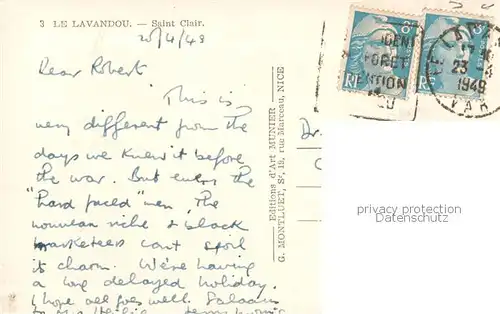 3 LE LAVANDOU. — Saint Clair.
Dear Robert
This is
very different from the
days we knew it before
the war. But even the
"hard faced" men, the
nouveau riche & black
marketeers cant spoil
its charm. We're having
a long delayed holiday.
I hope all goes well. Salaam
to Mrs
Editions d'Art MUNIER
G. MONTLUET, Sr, 15, rue Marceau, NICE
FORET
1949
VAR
Dr.
privacy protection
Datenschutz